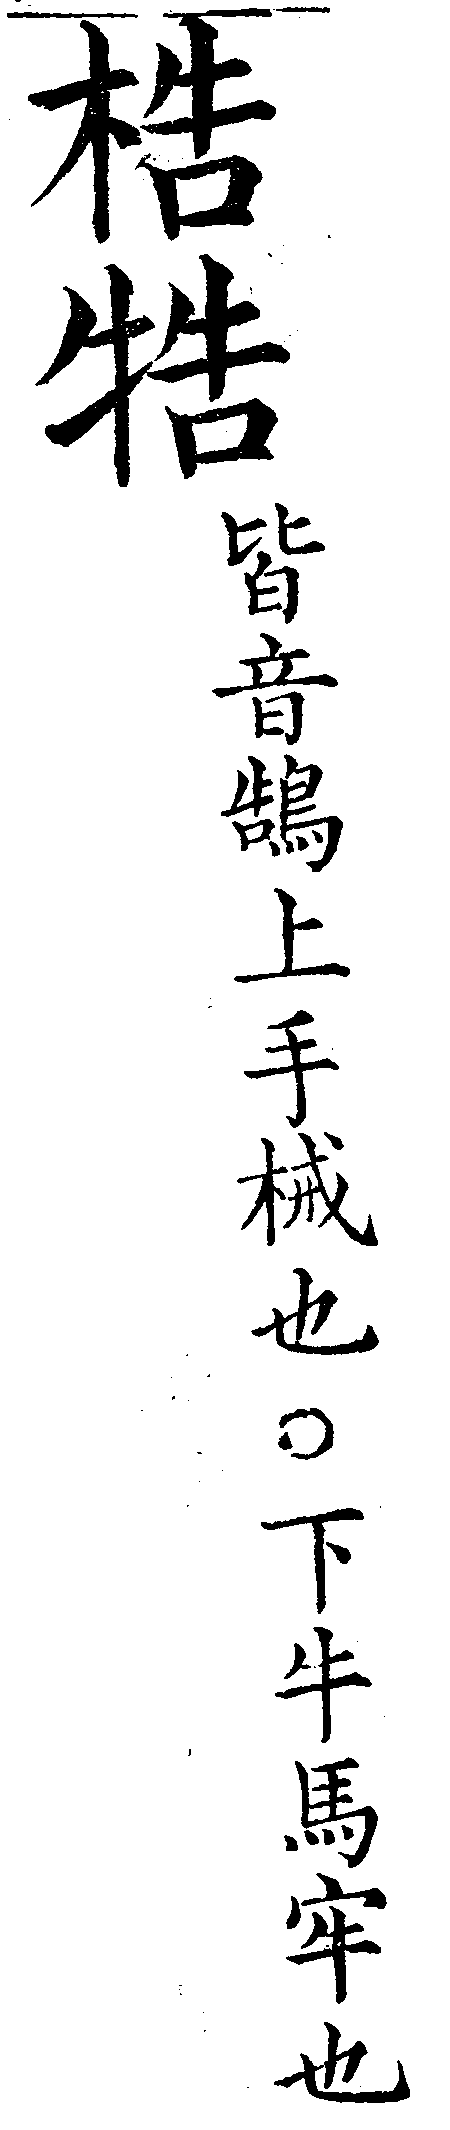 梏牿
皆音鵠上手械也○下牛馬牢也